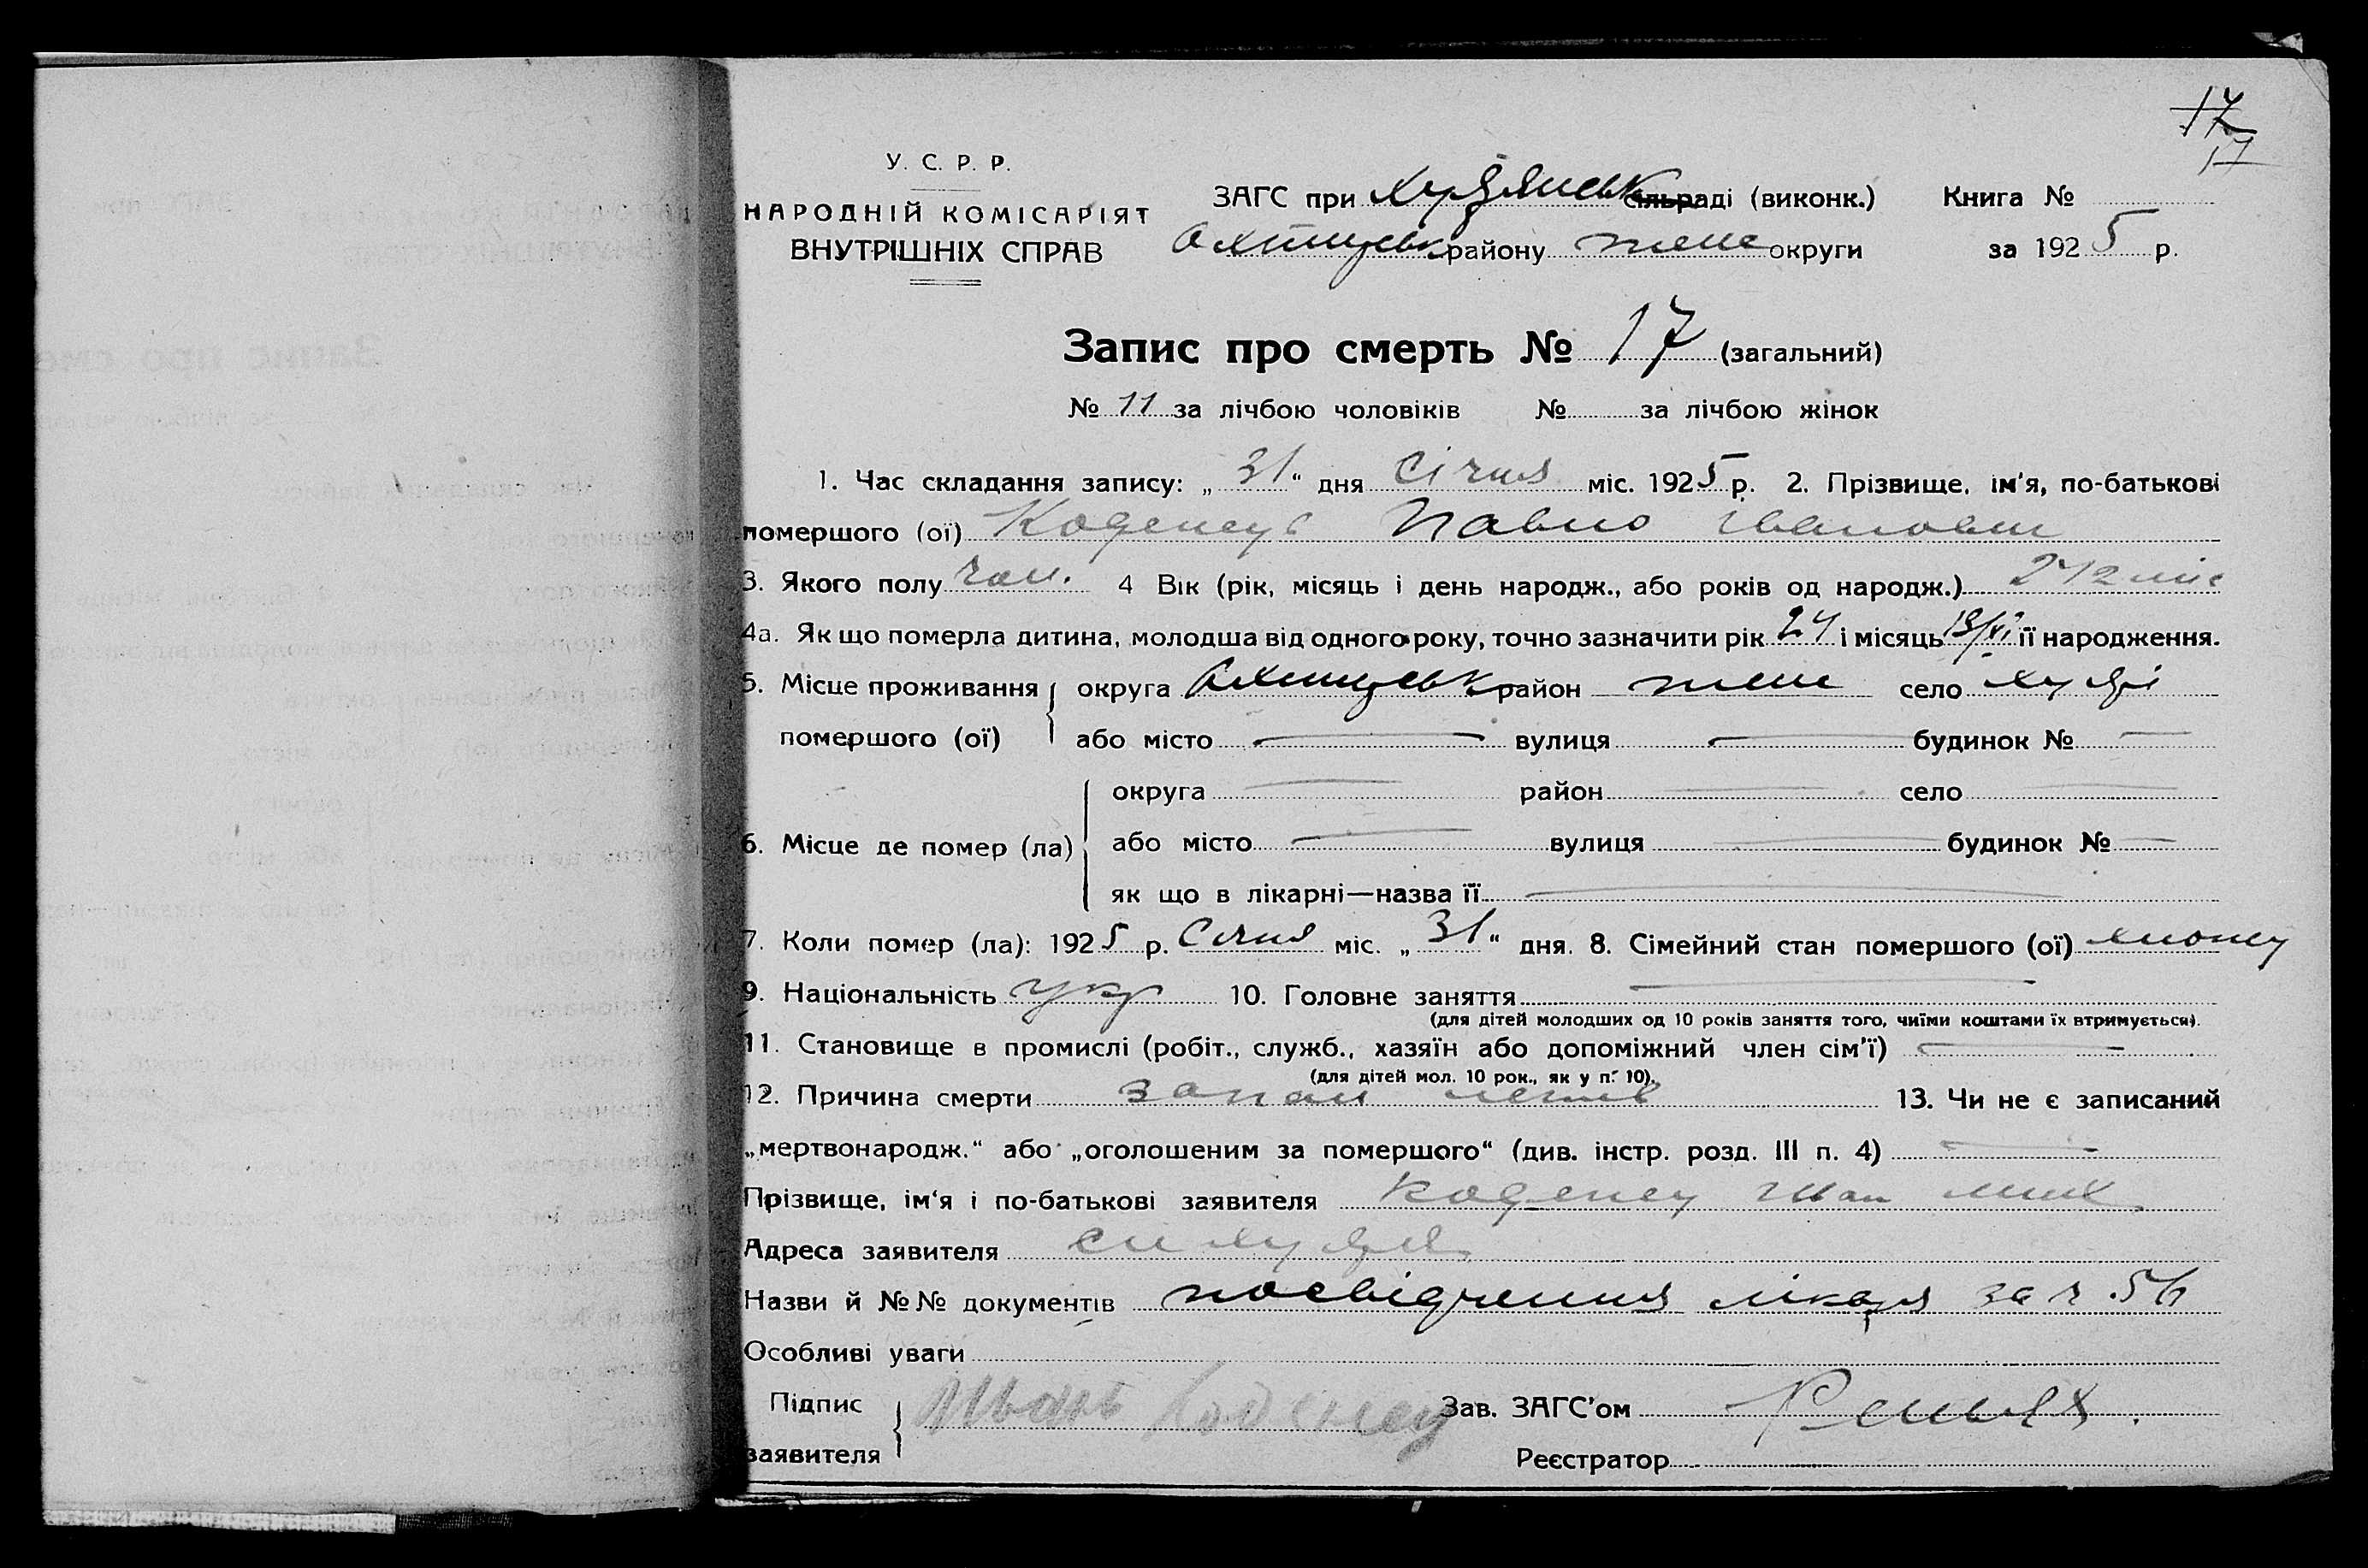 17
17
У. С. Р. Р.
НАРОДНІЙ КОМІСАРІЯТ
ВНУТРІШНІХ СПРАВ
ЗАГС при Худянськ сільраді (виконк.) Книга №
району округи за 1925 р.
Запис про смерть № 17 (загальний)
№ 11 за лічбою чоловіків № за лічбою жінок
1. Час складання запису: „31“ дня Січня міс. 1925 р. 2. Прізвище, ім'я, по-батькові
помершого (ої) Павло Іванович
3. Якого полу чол. 4 Вік (рік, місяць і день народж., або років од народж.) 2 1/2 міс
4а. Як що померла дитина, молодша від одного року, точно зазначити рік 24 і місяць її народження.
5. Місце проживання округа район село Худякі
помершого (ої) або місто — вулиця — будинок № —
округа — район — село —
6. Місце де помер (ла) або місто — вулиця — будинок № —
як що в лікарні—назва її —
7. Коли помер (ла): 1925 р. Січня міс. „31“ дня. 8. Сімейний стан помершого (ої)
9. Національність Укр 10. Головне заняття —
(для дітей молодших од 10 років заняття того, чиїми коштами їх втримується).
11. Становище в промислі (робіт., служб., хазяїн або допоміжний член сім'ї) —
(для дітей мол. 10 рок., як у п. 10).
12. Причина смерти запал легків 13. Чи не є записаний
„мертвонародж.“ або „оголошеним за помершого“ (див. інстр. розд. III п. 4) —
Прізвище, ім'я і по-батькові заявителя Коденец Иван Мих
Адреса заявителя
Назви й №№ документів посвідчення лікаря за ч. 56
Особливі уваги
Підпис Иванъ Коденец Зав. ЗАГС'ом
заявителя Реєстратор